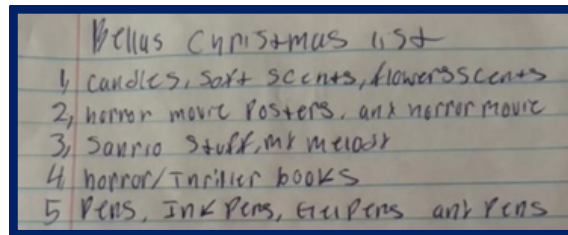 Bellas Christmas list
1, candles, soft scents, flowersscents
2, horror movie Posters, any horror movie
3, Sanrio Stuff, my melody
4 horror/Thriller books
5 Pens, Ink Pens, Gelpens any Pens